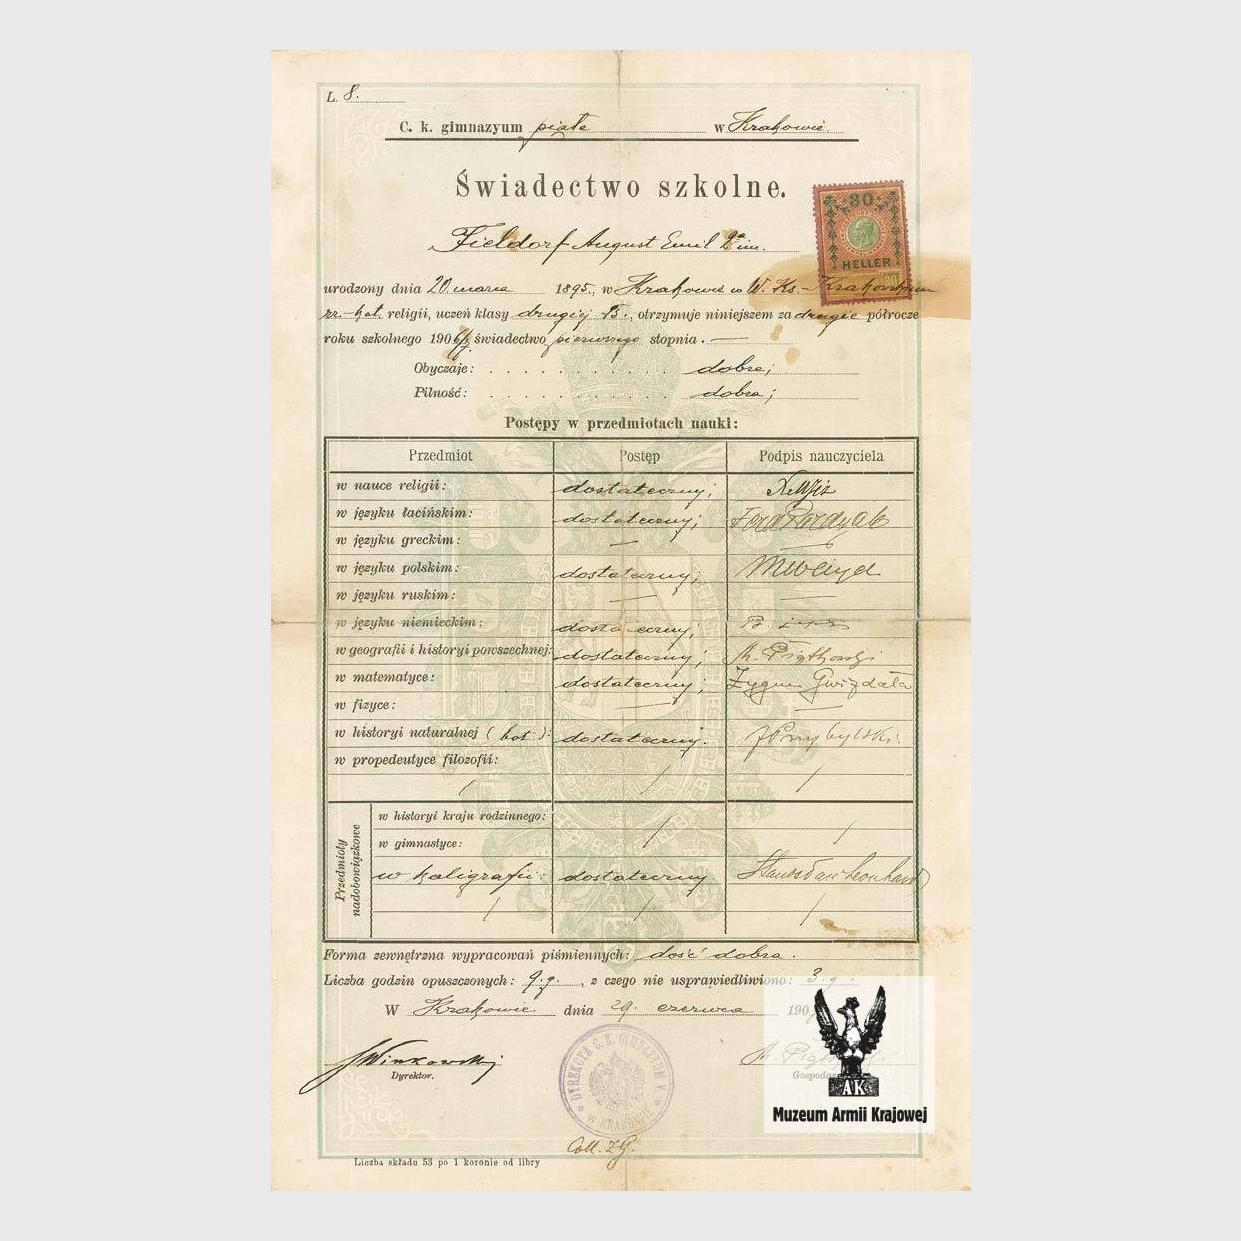 L. 8.
C. k. gimnazyum piąte w Krakowie.
Świadectwo szkolne.
80
HELLER
Fieldorf August Emil 2ga im.
urodzony dnia 20 marca 1895., w Krakowie w W. Ks. Krakowskiem
rz.-kat. religii, uczeń klasy drugiej B., otrzymuje niniejszem za drugie półrocze
roku szkolnego 1906/7 świadectwo pierwszego stopnia.
Obyczaje: dobre;
Pilność: dobra;
Postępy w przedmiotach nauki:
Przedmiot Postęp Podpis nauczyciela
w nauce religii: dostateczny;
w języku łacińskim: dostateczny;
w języku greckim: —
w języku polskim: dostateczny;
w języku ruskim: —
w języku niemieckim: dostateczny;
w geografii i historyi powszechnej: dostateczny; M. Piątkowski
w matematyce: dostateczny; Zygm. Gwizdała
w fizyce: —
w historyi naturalnej (bot.): dostateczny. Przybylski.
w propedeutyce filozofii: /
Przedmioty nadobowiązkowe
w historyi kraju rodzinnego:
w gimnastyce: /
w kaligrafii: dostateczny Stanisław Leonhard
Forma zewnętrzna wypracowań piśmiennych: dość dobra.
Liczba godzin opuszczonych: 9 g., z czego nie usprawiedliwiono: 3 g.
W Krakowie dnia 29. czerwca 190
Winkowski M. Piątkowski
Dyrektor. Gospodarz
DYREKCYA C. K. GIMNAZYUM V. W KRAKOWIE
AK
Muzeum Armii Krajowej
Coll. Z.G.
Liczba składu 53 po 1 koronie od libry